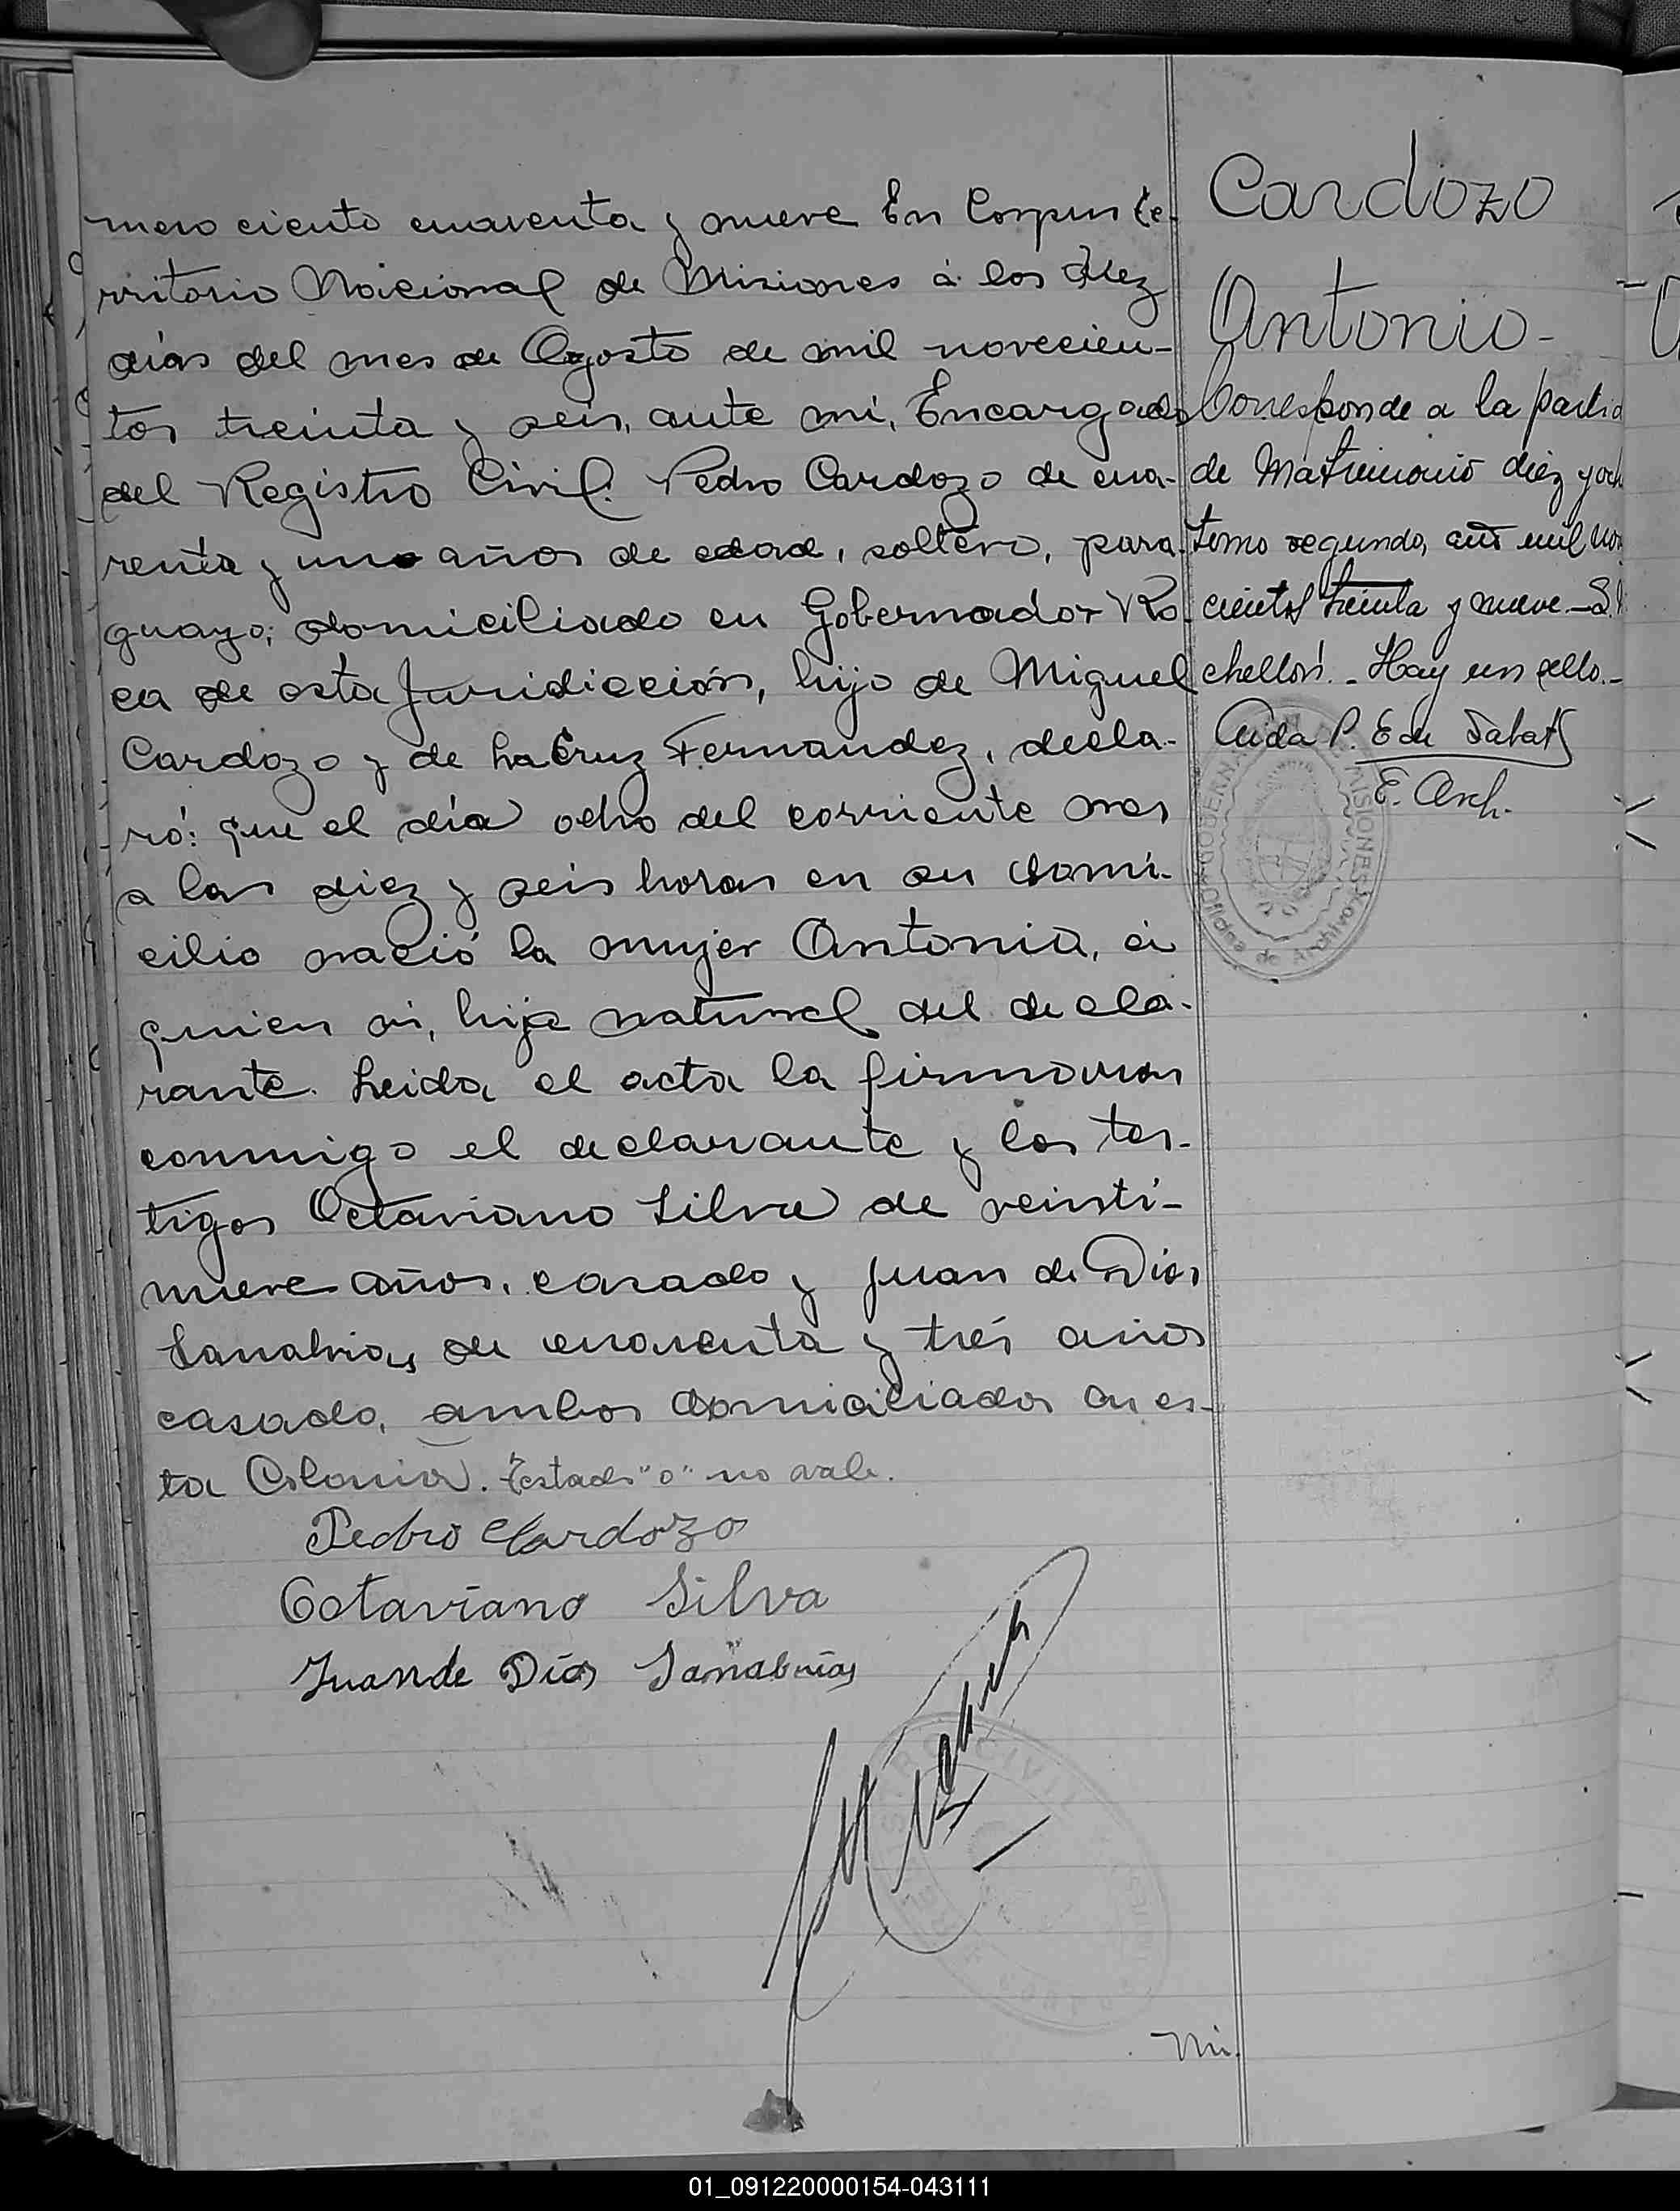 mero ciento cuarenta y nueve En Corpus te-
rritorio Nacional de Misiones á los diez
dias del mes de Agosto de mil novecien-
tos treinta y seis, ante mi, Encargado
del Registro Civil. Pedro Cardozo de cua-
renta y uno años de edad, soltero, para-
guayo; domiciliado en Gobernador Ro-
ca de esta Juridicción, hijo de Miguel
Cardozo y de La Cruz Fernandez, decla-
ró: que el día ocho del corriente mes
a las diez y seis horas en su domi-
cilio nació la mujer Antonia, á
quien vi, hija natural del decla-
rante. Leida el acta la firmaron
conmigo el declarante y los tes-
tigos Octaviano Silva de veinti-
nueve años, casado y Juan de Dios
Sanabrias de cuarenta y trés años
casado, ambos domiciliados en es-
ta Colonia. Testado "o" no vale.
Pedro Cardozo
Octaviano Silva
Juan de Dios Sanabrias
mi.
Cardozo
Antonio-
Corresponde a la partid
de Matrimonio diez y och
tomo segundo, año mil no
cientos treinta y nueve.- S.
chelloni.- Hay un sello.-
Aida P. E de Sabat
E. Arch.
GOBERNACION DE MISIONES
Oficina de Archivo
CIVIL
01_091220000154-043111